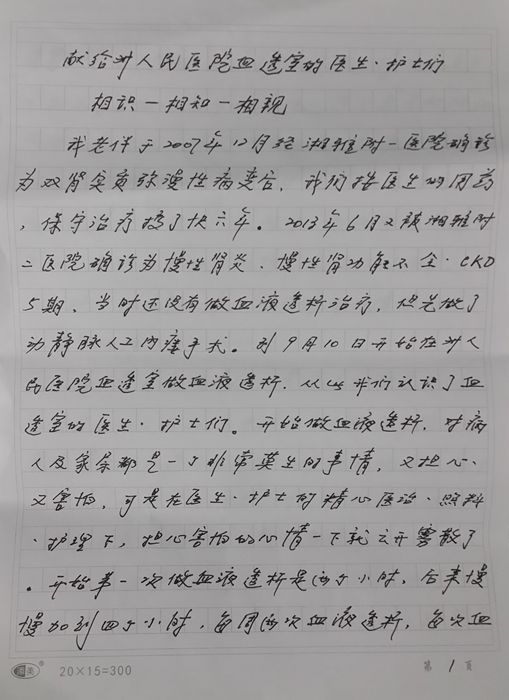 献给对人民医院血透室的医生·护士们
相识一相知一相视
我老伴于2007年12月经湘雅附一医院确诊
为双肾实质弥漫性病变后,我们按医生的用药
,保守治疗搞了快六年。2013年6月又被湘雅附
二医院确诊为慢性肾炎、慢性肾功能不全·CKD
5期,当时还没有做血液透析治疗,但先做了
动静脉人工内瘘手术。到9月10日开始在对人
民医院血透室做血液透析,从此我们认识了血
透室的医生·护士们。开始做血液透析,对病
人及家属都是一个非常莫生的事情,又担心
又害怕,可是在医生·护士的精心医治·照料
·护理下,担心害怕的心情一下就云开雾散了
。开始第一次做血液透析是两个小时,后来慢
慢加到四个小时,每周两次血液透析,每次血
20×15=300
第1页